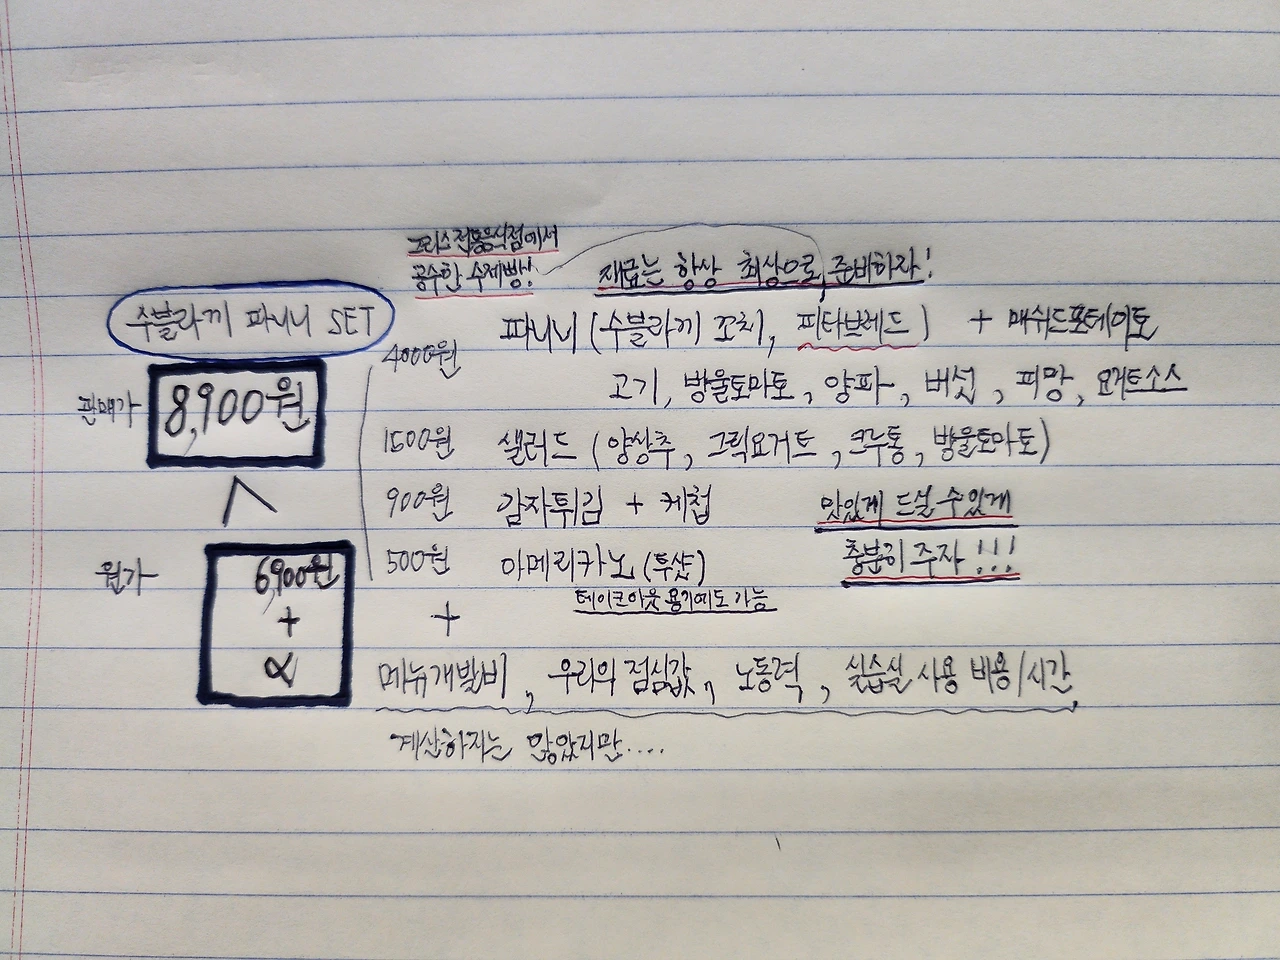 그리스 전통음식점에서
공수한 수제빵!
재료는 항상 최상으로 준비하자!
수블라끼 파니니 SET
파니니 (수블라끼 꼬치, 피타브레드) + 매쉬드포테이토
4000원
고기, 방울토마토, 양파, 버섯, 피망, 요거트소스
판매가 8,900원
1500원 샐러드 (양상추, 그릭요거트, 크루통, 방울토마토)
900원 감자튀김 + 케첩 맛있게 드실 수 있게
원가 6,900원 500원 아메리카노 (투샷) 충분히 주자!!!
테이크아웃 용기에도 가능
+ +
α 메뉴개발비, 우리의 점심값, 노동력, 실습실 사용 비용/시간
계산하지는 않았지만....